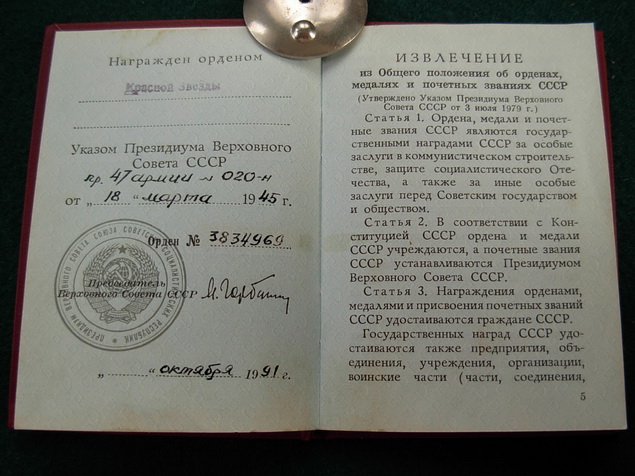 Награжден орденом
Красной Звезды
Указом Президиума Верховного
Совета СССР
пр. 47 армии № 020-н
от „ 18 " марта 1945 г.
Орден № 3834969
ПРЕЗИДИУМ ВЕРХОВНОГО СОВЕТА СОЮЗА СОВЕТСКИХ СОЦИАЛИСТИЧЕСКИХ РЕСПУБЛИК
Председатель
Верховного Совета СССР
„ " октября 1991 г.
ИЗВЛЕЧЕНИЕ
из Общего положения об орденах,
медалях и почетных званиях СССР
(Утверждено Указом Президиума Верховного
Совета СССР от 3 июля 1979 г.)
Статья 1. Ордена, медали и почет-
ные звания СССР являются государ-
ственными наградами СССР за особые
заслуги в коммунистическом строитель-
стве, защите социалистического Оте-
чества, а также за иные особые
заслуги перед Советским государством
и обществом.
Статья 2. В соответствии с Кон-
ституцией СССР ордена и медали
СССР учреждаются, а почетные звания
СССР устанавливаются Президиумом
Верховного Совета СССР.
Статья 3. Награждения орденами,
медалями и присвоения почетных званий
СССР удостаиваются граждане СССР.
Государственных наград СССР удо-
стаиваются также предприятия, объ-
единения, учреждения, организации,
воинские части (части, соединения,
5